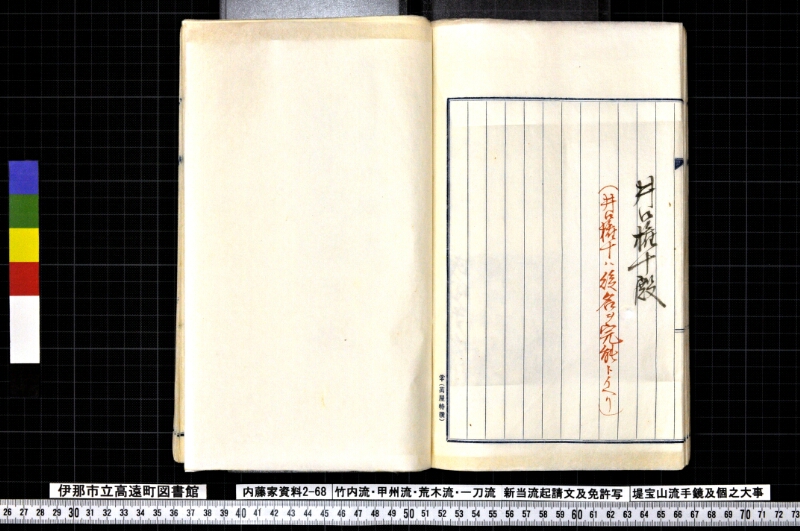 井口権十殿
（井口権十ハ後名ヲ完能ト云ヘリ）
伊那市立高遠町図書館
内藤家資料2-68
竹内流・甲州流・荒木流・一刀流 新当流起請文及免許写
堤宝山流手鏡及個之大事
26 27 28 29 30 31 32 33 34 35 36 37 38 39 40 41 42 43 44 45 46 47 48 49 50 51 52 53 54 55 56 57 58 59 60 61 62 63 64 65 66 67 68 69 70 71 72 73